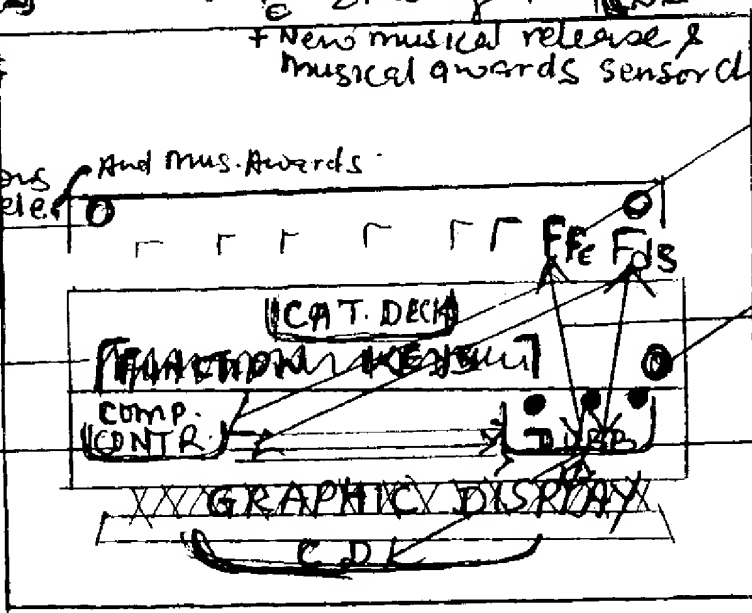 + New musical release &
musical awards sensor d
ons And Mus. Awards.
ele.
F FE FdS
CAT. DECK
FUNCTION KEYS
COMP.
CONTR.
GRAPHIC DISPLAY
CDL